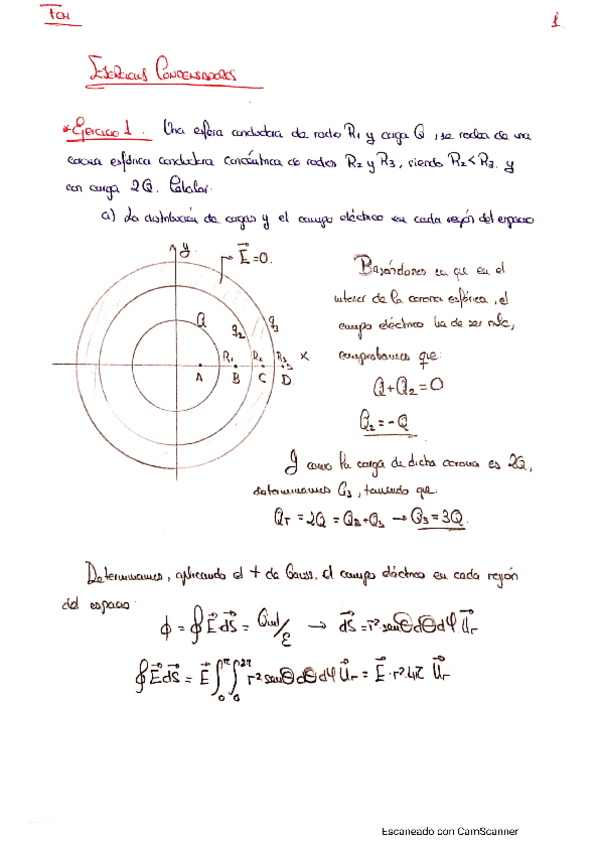 FCH
1
EJERCICIOS CONDENSADORES
*Ejercicio 1. Una esfera conductora de radio R1 y carga Q, se rodea de una
corona esférica conductora concéntrica de radios R2 y R3, siendo R2<R3. y
con carga 2Q. Calcular:
a) La distribución de cargas y el campo eléctrico en cada región del espacio
y
E⃗=0.
Q
q2
q3
R1
R2
R3
X
A
B
C
D
Basándonos en que en el
interior de la corona esférica, el
campo eléctrico ha de ser nulo,
comprobamos que:
Q+Q2=0
Q2=-Q
Y como la carga de dicha corona es 2Q,
determinamos Q3, teniendo que:
QT = 2Q = Q2+Q3 → Q3=3Q.
Determinamos, aplicando el t de Gauss, el campo eléctrico en cada región
del espacio:
ϕ = ∮E⃗dS⃗ = Qint/ε → dS⃗=r²senθdθdφ U⃗r
∮E⃗dS⃗ = E⃗∫₀^π∫₀^2π r²senθdθdφ U⃗r = E⃗·r²·4π U⃗r
Escaneado con CamScanner